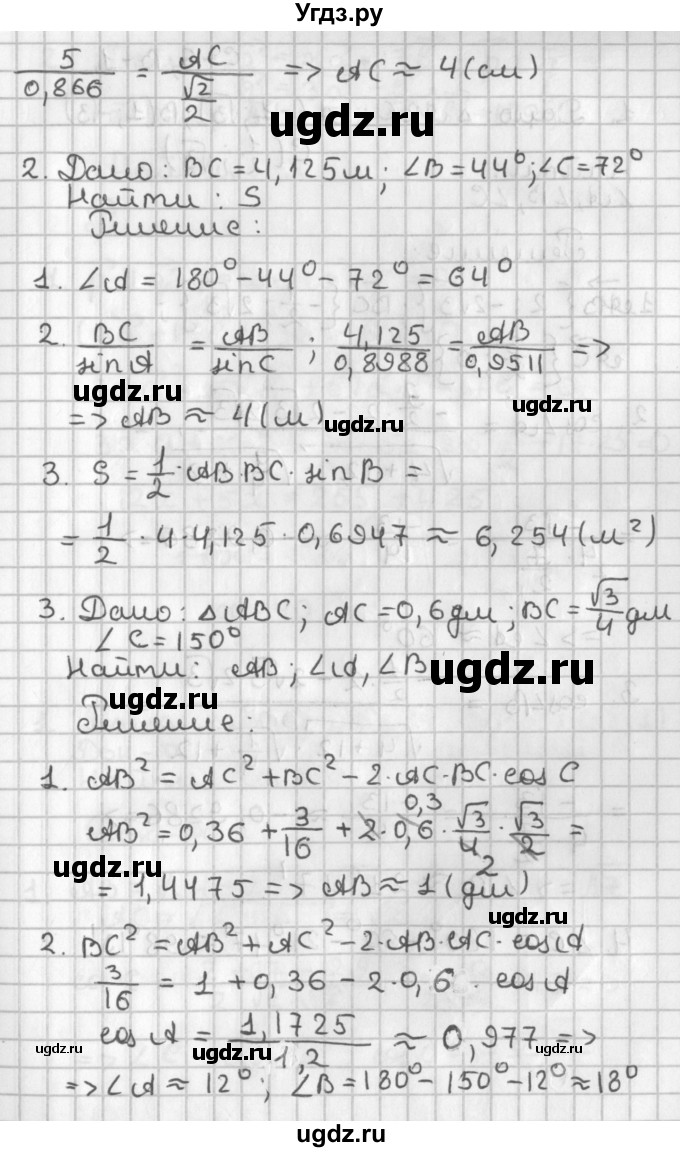 Угдз.ру
5/0,866 = AC/(√2/2) => AC ≈ 4(см)
ugdz.ru
2. Дано: BC=4,125м; ∠B=44°; ∠C=72°
Найти: S
Решение:
1. ∠A = 180°-44°-72° = 64°
2. BC/sinA = AB/sinC ; 4,125/0,8988 = AB/0,9511 =>
ugdz.ru ugdz.ru
=> AB ≈ 4(м)
ugdz.ru
3. S = 1/2·AB·BC·sinB =
= 1/2·4·4,125·0,6947 ≈ 6,254(м²)
ugdz.ru
3. Дано: △ABC; AC=0,6дм; BC=√3/4дм
∠C=150°
Найти: AB; ∠A, ∠B
ugdz.ru
ugdz.ru
Решение:
1. AB² = AC²+BC²-2·AC·BC·cosC
0,3
AB²=0,36+3/16+2·0,6·√3/4·√3/2 =
2
ugdz.ru
= 1,4475 => AB ≈ 1(дм)
ugdz.ru
2. BC²=AB²+AC²-2·AB·AC·cosA
3/16 = 1+0,36-2·0,6·cosA
cosA = 1,1725/1,2 ≈ 0,977 =>
ugdz.ru ugdz.ru ugdz.ru
=> ∠A ≈ 12°; ∠B=180°-150°-12°≈18°
ugdz.ru